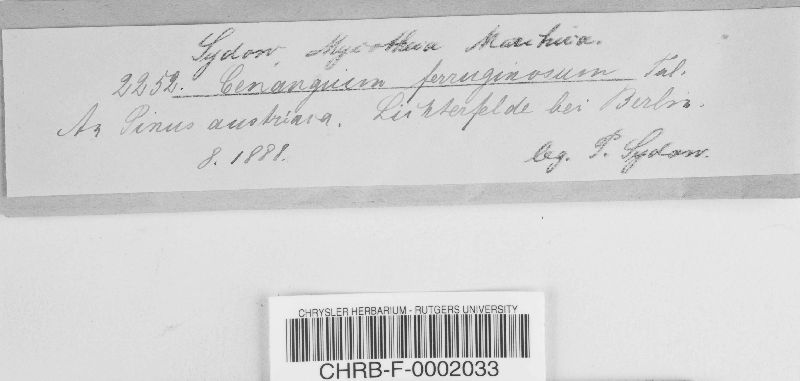 Sydow, Mycotheca Marchica.
2252. Cenangium ferruginosum Tul.
An Pinus austriaca. Lichterfelde bei Berlin.
8. 1888. leg. P. Sydow.
CHRYSLER HERBARIUM - RUTGERS UNIVERSITY
CHRB-F-0002033